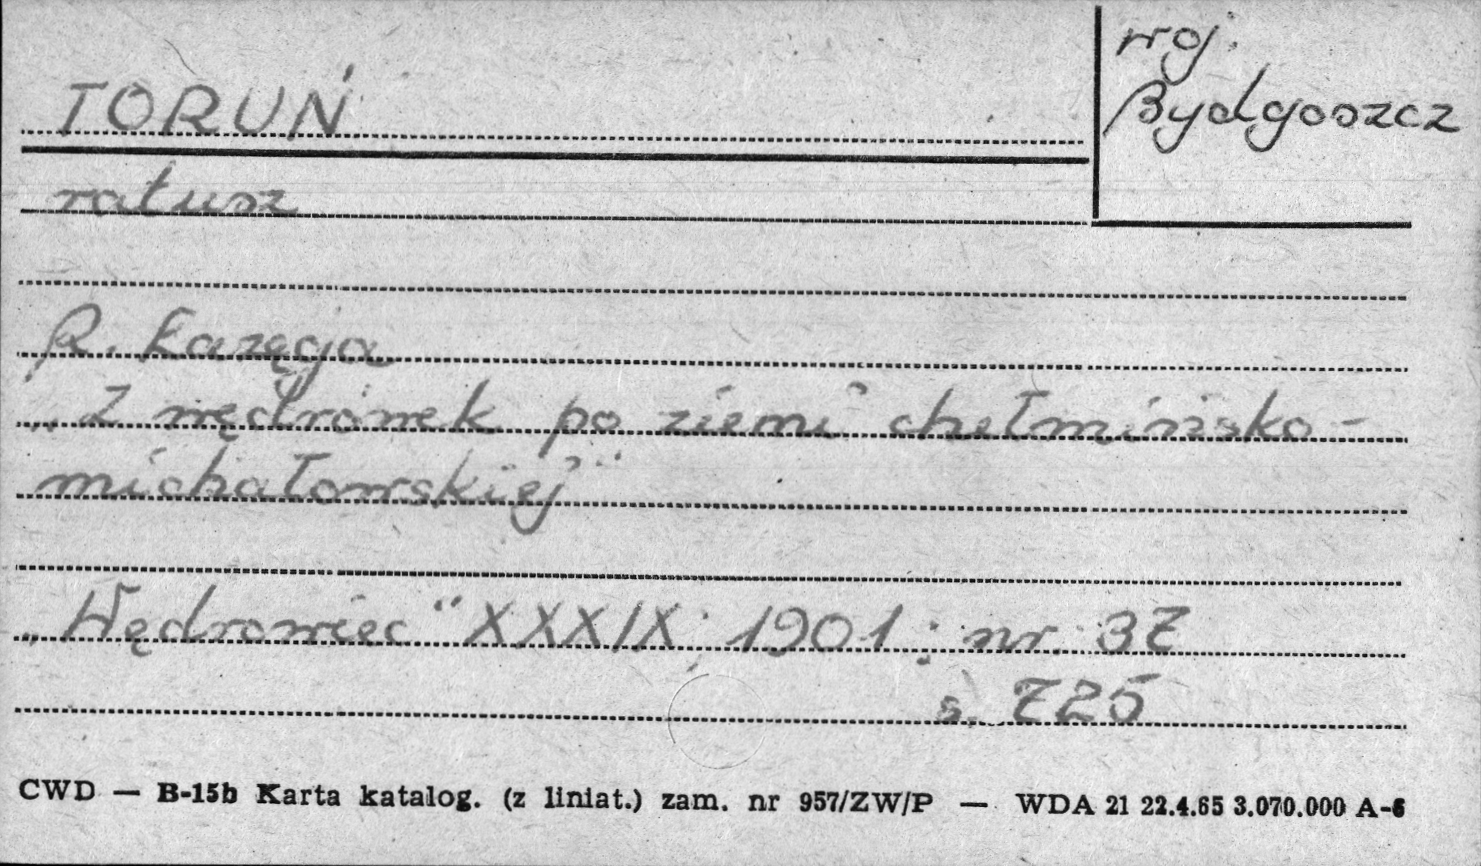 TORUŃ
woj.
Bydgoszcz
ratusz
R. Łazęga
„Z wędrówek po ziemi chełmińsko-
michałowskiej"
„Wędrowiec" XXXIX; 1901; nr. 37
s. 725
CWD — B-15b Karta katalog. (z liniat.) zam. nr 957/ZW/P — WDA 21 22.4.65 3.070.000 A-6